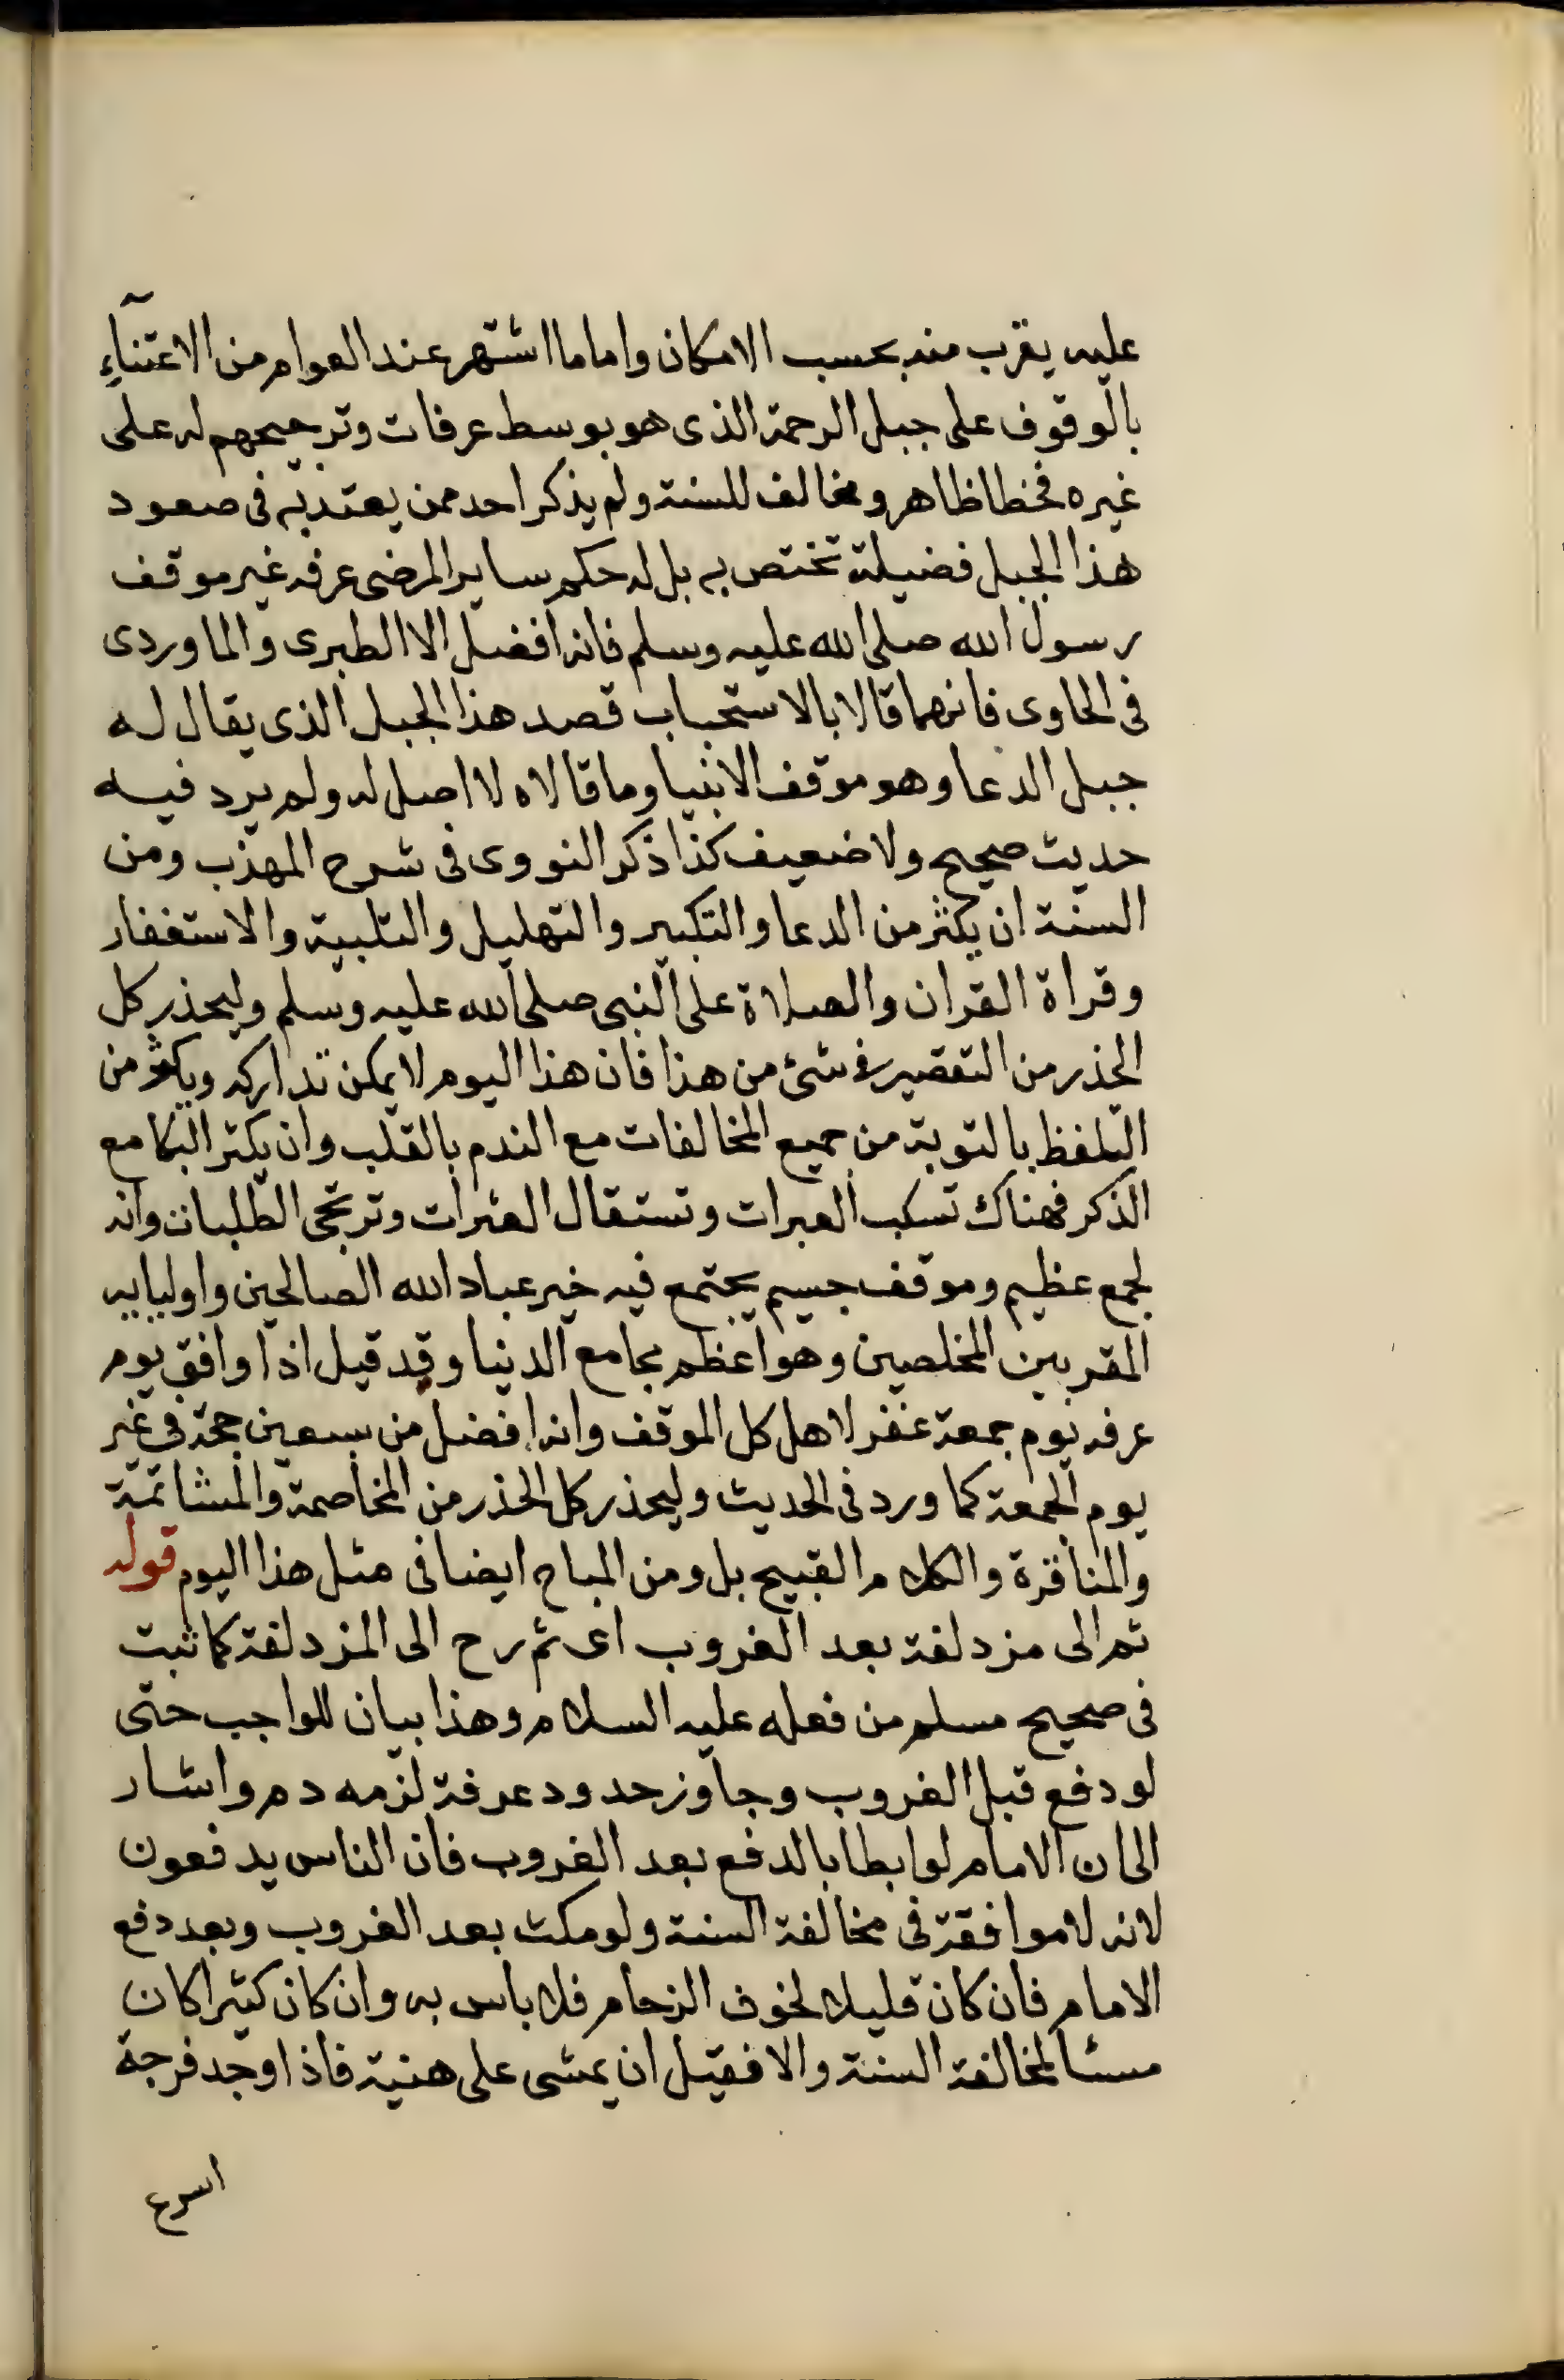 عليه يقرب منه بحسب الامكان واما ما اشتهر عند العوام من الاعتنآءِ
بالوقوف على جبل الرحمة الذى هو بوسط عرفات وترجيحهم له على
غيره فخطا ظاهر ومخالف للسنة ولم يذكر احد ممن يعتد به فى صعود
هذا الجبل فضيلة تختص به بل له حكم ساير المرضى عرفه غير موقف
رسول الله صلى الله عليه وسلم فانه افضل الا الطبرى والماوردى
فى الحاوى فانهما قالا بالاستحباب قصد هذا الجبل الذى يقال له
جبل الدعا وهو موقف الانبيا وما قالاه لا اصل له ولم يرد فيه
حديث صحيح ولا ضعيف كذا ذكر النووى فى شرح المهذب ومن
السنة ان يكثر من الدعا والتكبير والتهليل والتلبية والاستغفار
وقراة القران والصلاة على النبى صلى الله عليه وسلم وليحذر كل
الحذر من التقصير فى شئ من هذا فان هذا اليوم لا يمكن تداركه ويكثر من
التلفظ بالتوبة من جميع المخالفات مع الندم بالقلب وان يكثر البكا مع
الذكر فهناك تسكب العبرات وتستقال العثرات وترتجى الطلبات وانه
لجمع عظيم وموقف جسيم يجتمع فيه خير عباد الله الصالحين واوليايه
المقربين المخلصين وهو اعظم مجامع الدنيا وقد قيل اذا وافق يوم
عرفه يوم جمعة غفر لاهل كل الموقف وانه افضل من سبعين حجة فى غير
يوم الجمعة كما ورد فى الحديث وليحذر كل الحذر من المخاصمة والمشاتمة
والمنافرة والكلام القبيح بل ومن المباح ايضا فى مثل هذا اليوم قوله
ثم الى مزدلفة بعد الغروب اى ثم رح الى المزدلفة كما ثبت
فى صحيح مسلم من فعله عليه السلام وهذا بيان للواجب حتى
لو دفع قبل الغروب وجاوز حدود عرفة لزمه دم واشار
الى ان الامام لو ابطا بالدفع بعد الغروب فان الناس يدفعون
لانه لا موافقة فى مخالفة السنة ولو مكث بعد الغروب وبعد دفع
الامام فان كان قليلا لخوف الزحام فلا باس به وان كان كثيرا كان
مسئا لمخالفة السنة والافقيل ان يمشى على هنية فاذا وجد فرجة
اسرع